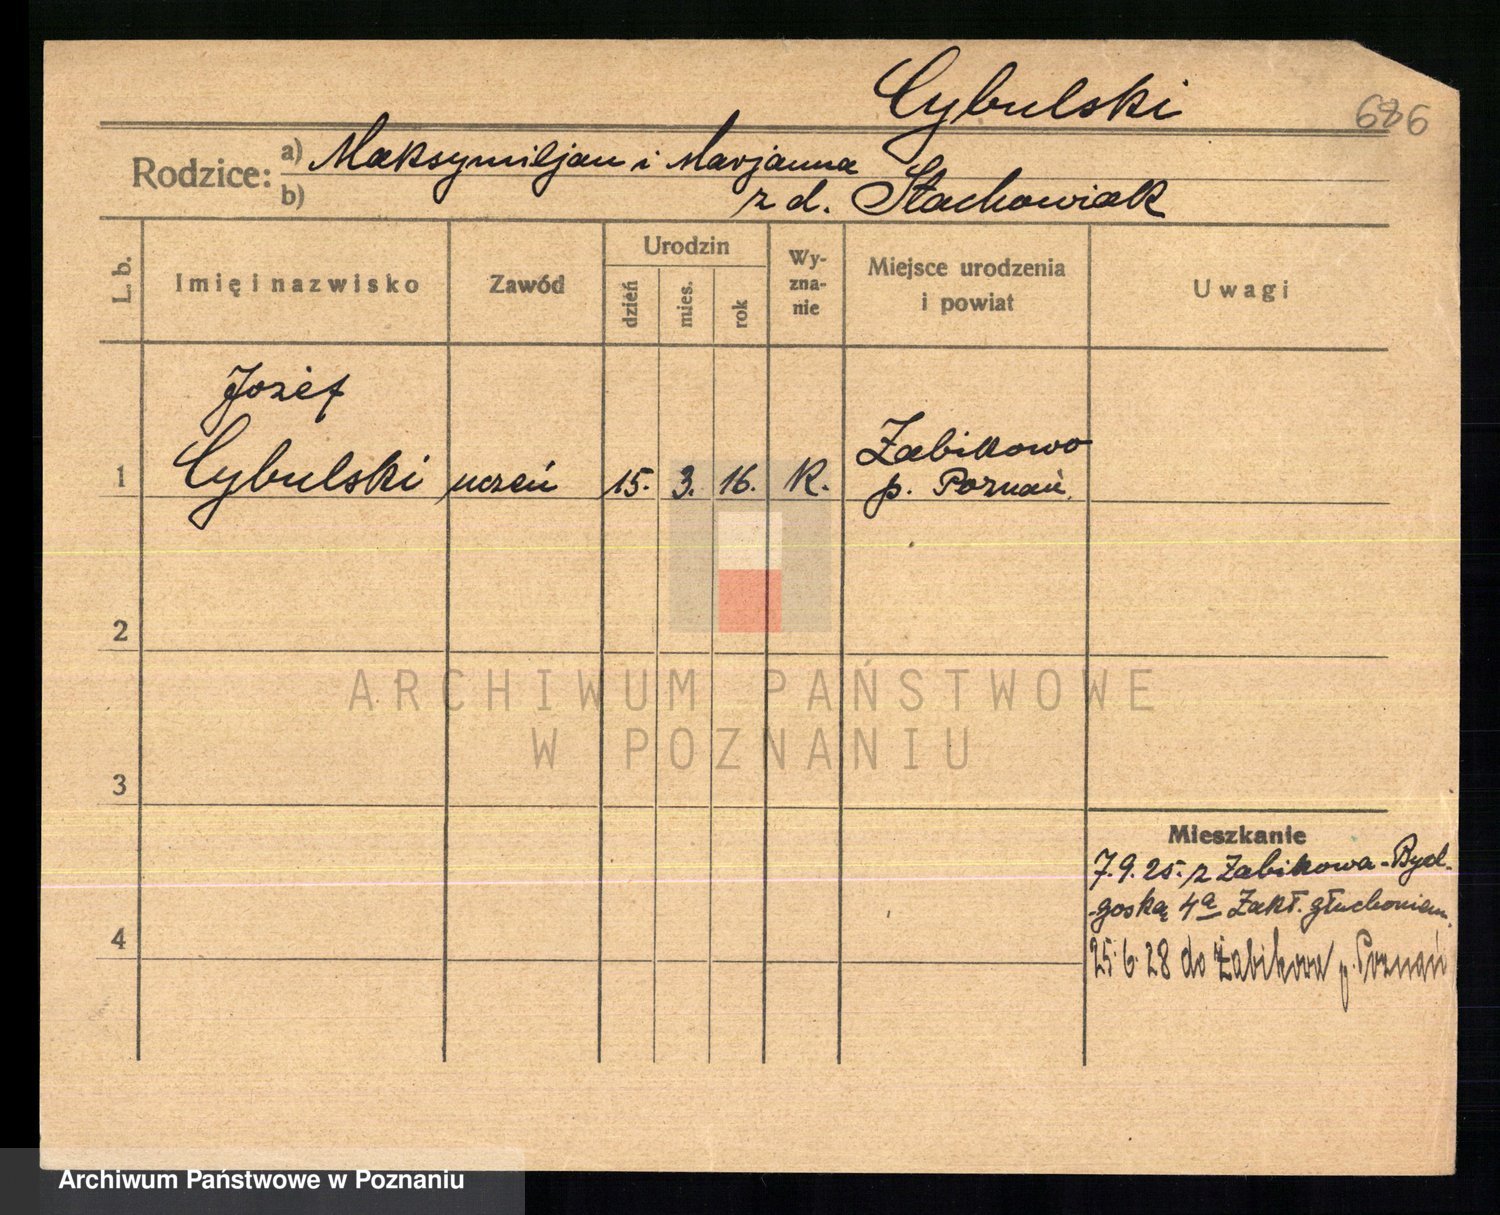 Cybulski
686
Rodzice: a) Maksymiljan i Marjanna
b) z d. Stachowiak
L. b.
Imię i nazwisko
Zawód
Urodzin
dzień
mies.
rok
Wy-
zna-
nie
Miejsce urodzenia
i powiat
Uwagi
Józef
1 Cybulski uczeń 15. 3. 16. K. Żabikowo
p. Poznań.
2
ARCHIWUM PAŃSTWOWE
W POZNANIU
3
Mieszkanie
7.9.25. z Żabikowa - Byd-
-goska 4a Zakł. głuchoniem.
4
25.6.28 do Żabikowa p. Poznań
Archiwum Państwowe w Poznaniu